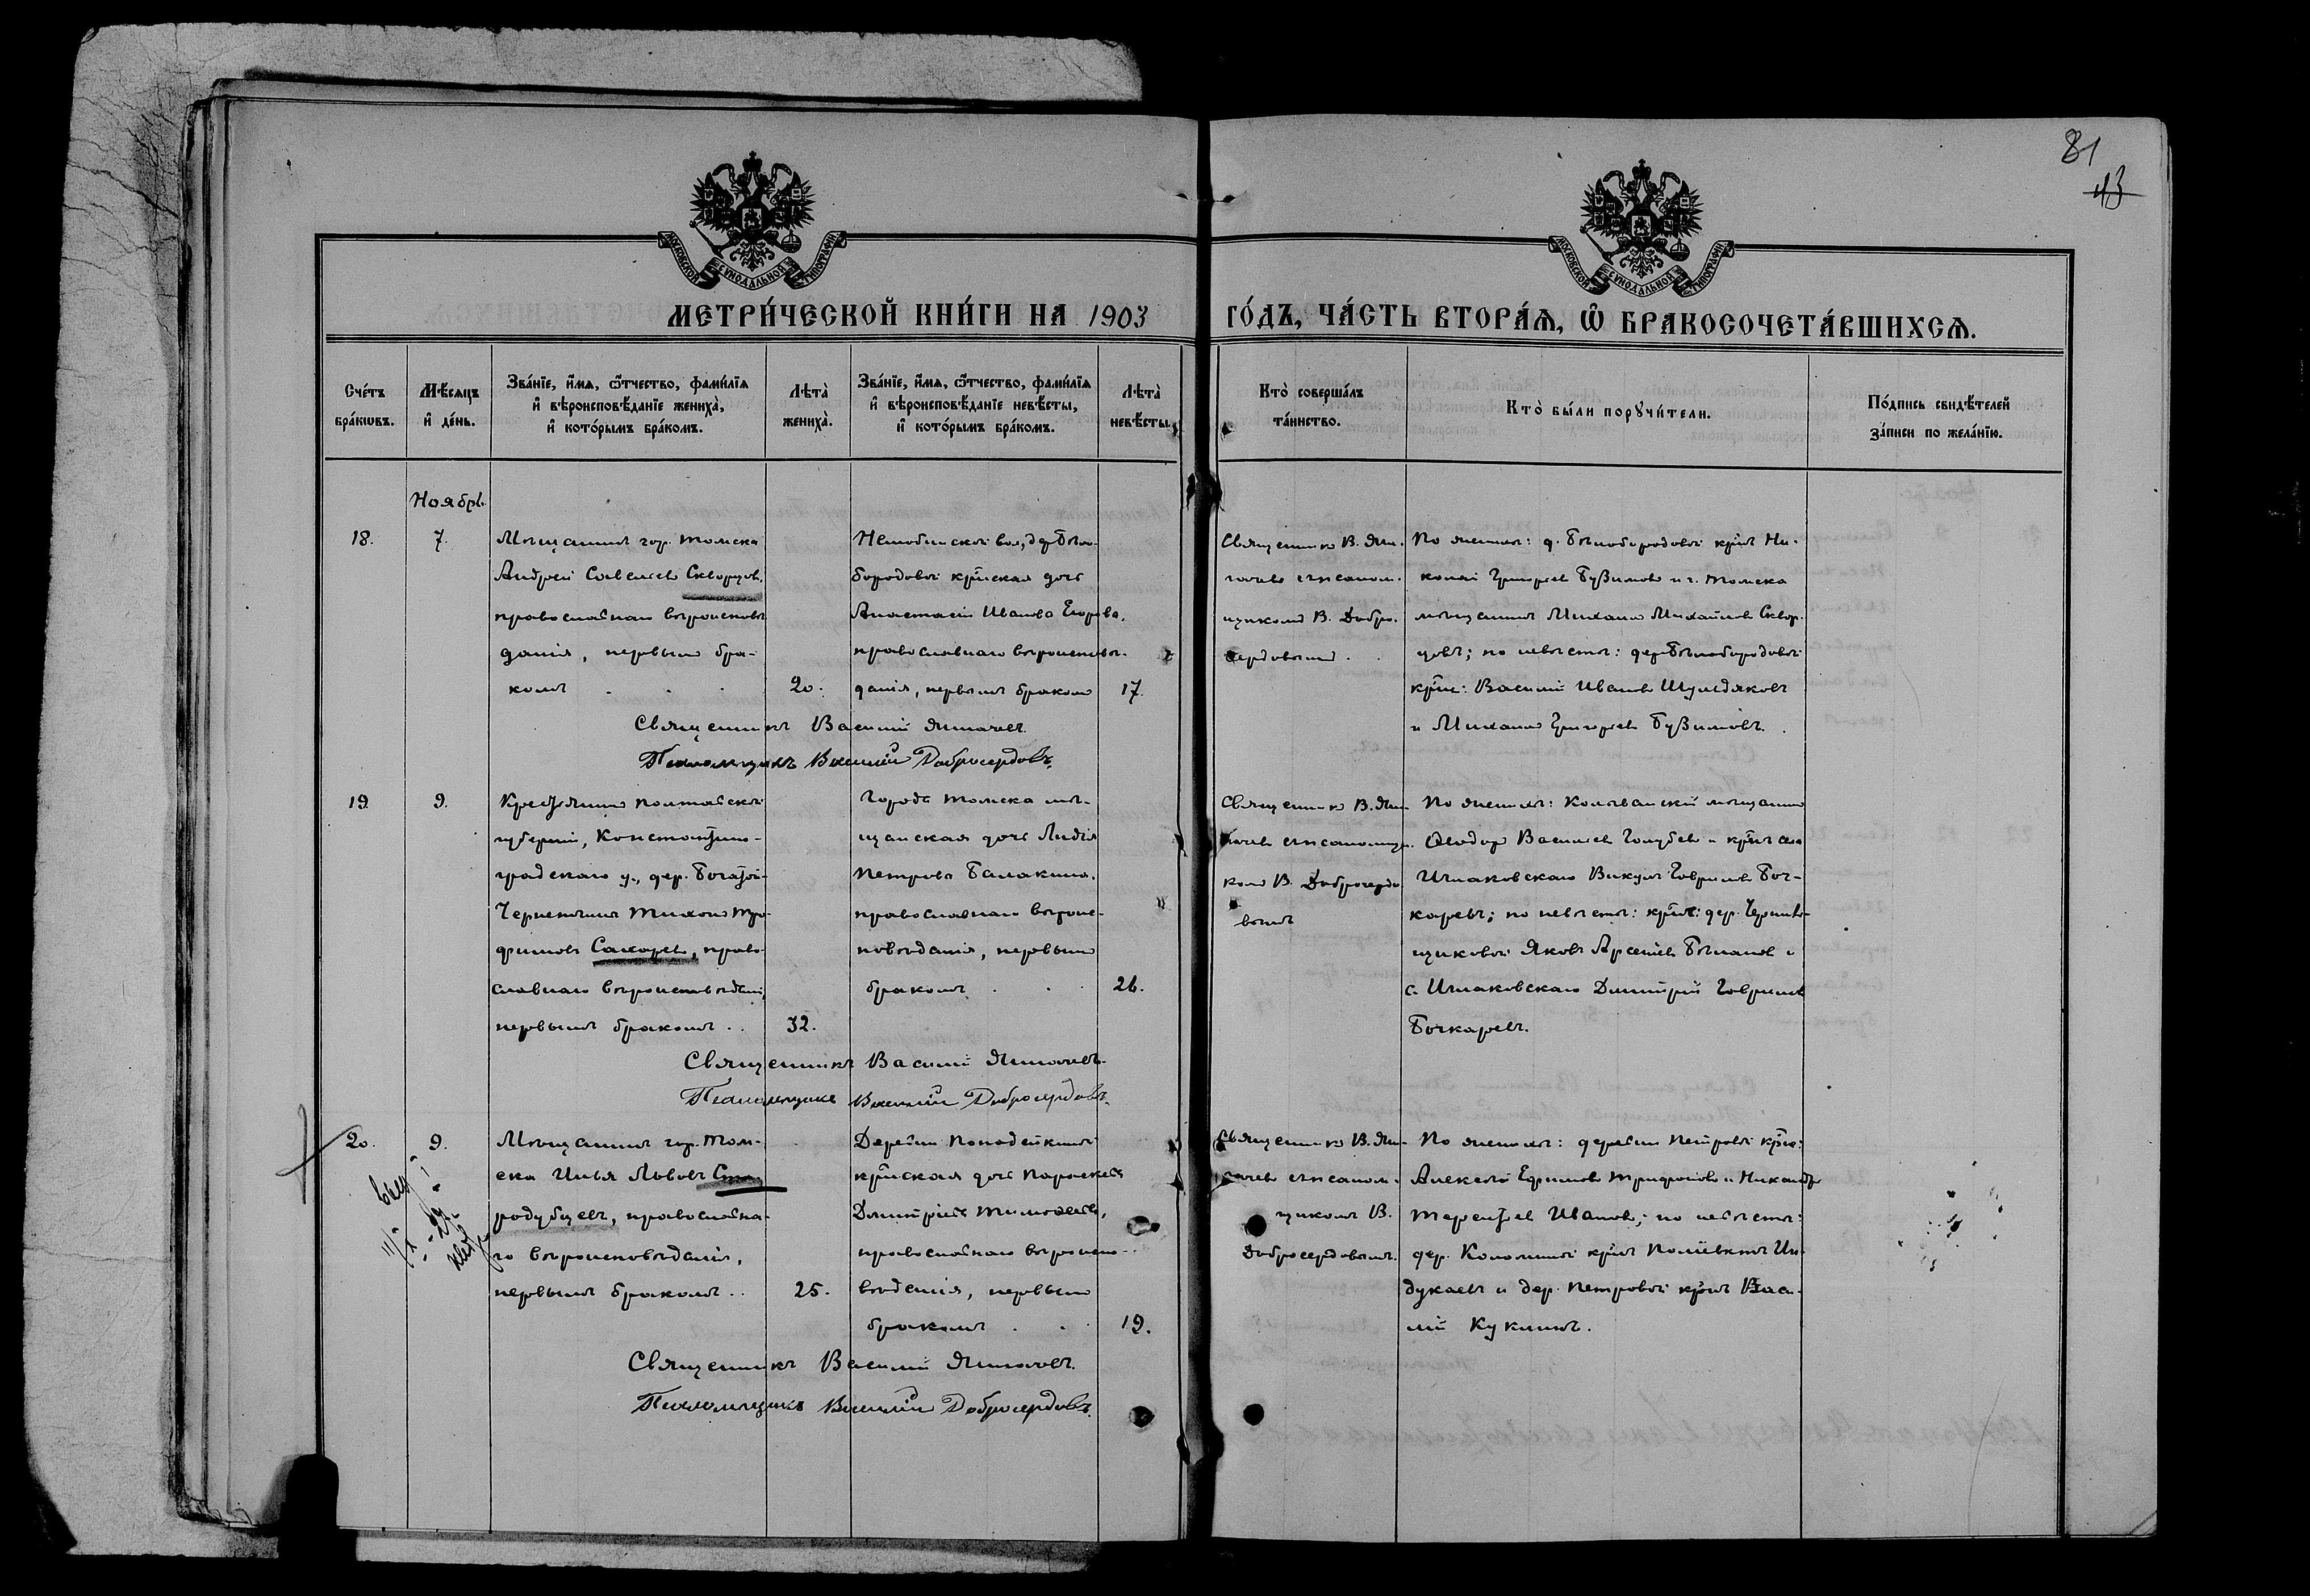 81
43
МОСКОВСКОЙ СУНОДАЛЬНОЙ ТИПОГРАФИИ
МОСКОВСКОЙ СУНОДАЛЬНОЙ ТИПОГРАФИИ
МЕТРИ́ЧЕСКОЙ КНИ́ГИ НА 1903 ГО́ДЪ, ЧА́СТЬ ВТОРА́Ѧ, Ѽ БРАКОСОЧЕТА́ВШИХСѦ.
Сче́тъ бра́кѡвъ.
Мѣ́сяцъ и҆ де́нь.
Зва́нїе, и҆́мѧ, ѻ҆́тчество, фами́лїѧ
и҆ вѣроисповѣ́данїе жениха̀,
и҆ кото́рымъ бра́комъ.
Лѣта̀ жениха̀.
Зва́нїе, и҆́мѧ, ѻ҆́тчество, фами́лїѧ
и҆ вѣроисповѣ́данїе невѣ́сты,
и҆ кото́рымъ бра́комъ.
Лѣта̀ невѣ́сты.
Кто̀ соверша́лъ
та́инство.
Кто̀ бы́ли порꙋчи́тели.
По́дпись свидѣ́телей
за́писи по жела́нїю.
Ноябрь.
18.
7.
Мѣщанинъ гор. Томска
Андрей Савельевъ Скворцов,
православнаго вѣроисповѣ
данія, первымъ бра-
комъ
20.
Нелюбинской вол., дер. Бѣло-
бородовой крестьская дочь
Анастасія Иванова Егорова,
православнаго вѣроисповѣ-
данія, первымъ бракомъ
17.
Священникъ В. Яки-
съ псалом-
щикомъ В. Добро-
сердовымъ.
По женихѣ: д. Бѣлобородовой кр-нъ Ни-
колай Григорьев Бузимовъ и г. Томска
мѣщанинъ Михаилъ Михайловъ Сквор-
цовъ; по невѣстѣ: дер. Бѣлобородовой
крн: Василій Ивановъ Шумдяковъ
и Михаилъ Григорьевъ Бузимовъ.
Священникъ Василій
Псаломщикъ Василій Добросердовъ.
19.
9.
Крестьянинъ Полтавской
губерніи, Константино-
градскаго у., дер. Богатой-
Тихонъ Тро-
фимовъ Сахаревъ, право-
славнаго вѣроисповѣданія,
первымъ бракомъ
32.
Города Томска мѣ-
щанская дочь Лидія
Петрова Балакина,
православнаго вѣроис-
повѣданія, первымъ
бракомъ
26.
Священникъ В. Яки-
съ псаломщи-
комъ В. Добросердо
вымъ
По женихѣ: Колыванскій мѣщанинъ
Ѳеодоръ Васильевъ Голубевъ и кр-нъ села
Иглаковскаго Викулъ Гавриловъ Боч-
каревъ; по невѣстѣ: крн: дер. Черниль-
щиковой Яковъ Арсеньевъ и
с. Иглаковскаго Димитрій Гавриловъ
Бочкаревъ.
Священникъ Василій
Псаломщикъ Василій Добросердовъ.
20.
9.
Мѣщанинъ гор. Том-
ска Илья Львовъ Ста-
родубцевъ, православна-
го вѣроисповѣданія,
первымъ бракомъ
25.
Деревни Попадейкиной
крестьская дочь Параскева
Димитріева Тимоѳеева,
православнаго вѣроиспо-
вѣданія, первымъ
бракомъ
19.
Священникъ В. Яки-
съ псалом-
щикомъ В.
Добросердовымъ.
По женихѣ: деревни Петровой крн:
Алексѣй Ефимовъ Трифоновъ и Никандръ
Терентьев Ивановъ; по невѣстѣ:
дер. Коломиной кр-нъ Поліевктъ Ин-
дукаевъ и дер. Петровой кр-нъ Васи-
лій Кукинъ.
Священникъ Василій
Псаломщикъ Василій Добросердовъ.